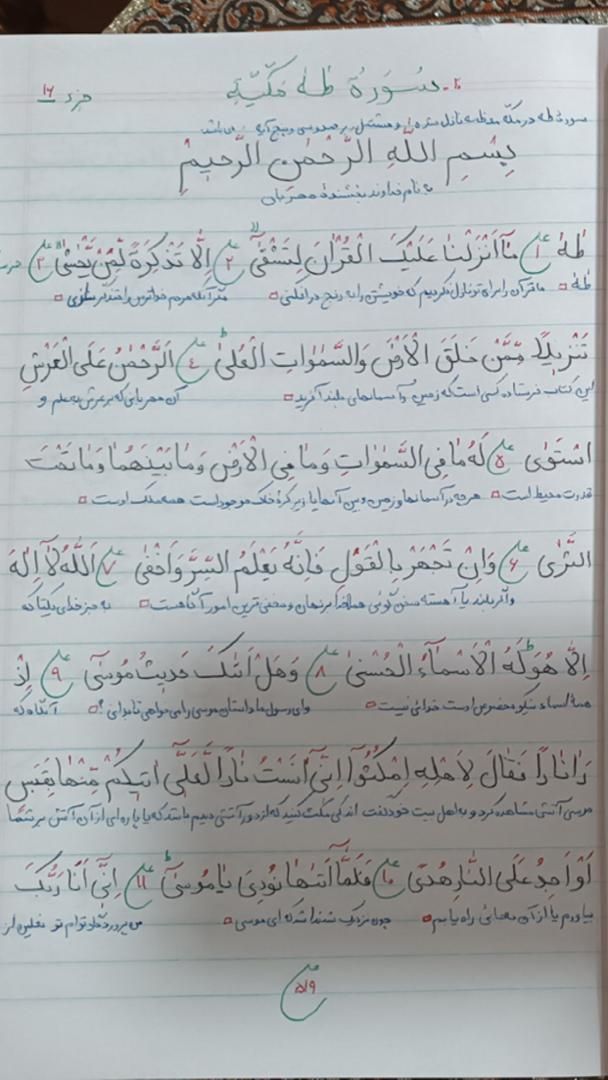 ٢٠- سُورَةُ طٰهٰ مَكِّيَّة جزء ١٦
سوره طه در مکه معظمه نازل شده و مشتمل بر صد و سی و پنج آیه می باشد
بِسْمِ اللَّهِ الرَّحْمٰنِ الرَّحِیمِ
به نام خداوند بخشندهٔ مهربان
طٰهٰ ١ مٰا أَنْزَلْنٰا عَلَيْكَ الْقُرْاٰنَ لِتَشْقىٰ ٢ إِلّٰا تَذْكِرَةً لِّمَنْ يَّخْشىٰ ٣
طٰهٰ ما قرآن را برای تو نازل نکردیم که خویشتن را به رنج درافکنی مگر آنکه مردم خداترس را متذکر سازی
تَنْزِيلاً مِّمَّنْ خَلَقَ الْأَرْضَ وَالسَّمٰوٰاتِ الْعُلىٰ ٤ اَلرَّحْمٰنُ عَلَى الْعَرْشِ
این کتاب فرستاده کسی است که زمین و آسمانهای بلند آفرید آن مهربانی که بر عرش به علم و
اسْتَوٰى ٥ لَهُ مٰا فِي السَّمٰوٰاتِ وَمٰا فِي الْأَرْضِ وَمٰا بَيْنَهُمٰا وَمٰا تَحْتَ
قدرت محیط است هرچه در آسمانها و زمین و بین آنها یا زیر کرهٔ خاک موجود است همه ملک اوست
الثَّرٰى ٦ وَإِنْ تَجْهَرْ بِالْقَوْلِ فَإِنَّهُ يَعْلَمُ السِّرَّ وَأَخْفىٰ ٧ اَللَّهُ لٰا إِلٰهَ
و اگر بلند یا آهسته سخن گوئی همانا خدا بر نهان و مخفی ترین امور آگاهست به جز خدای یکتا که
إِلّٰا هُوَ لَهُ الْأَسْمٰآءُ الْحُسْنىٰ ٨ وَهَلْ أَتٰىكَ حَدِيثُ مُوسىٰ ٩ إِذْ
همهٔ اسماء نیکو مخصوص اوست خدائی نیست و ای رسول ما داستان موسی را می خواهی تا بدانی؟ آنگاه که
رَاٰ نٰاراً فَقٰالَ لِأَهْلِهِ امْكُثُوٓا إِنِّيٓ اٰنَسْتُ نٰاراً لَّعَلِّيٓ اٰتِيكُمْ مِّنْهٰا بِقَبَسٍ
موسی آتشی مشاهده کرد و به اهل بیت خود گفت اندکی مکث کنید که از دور آتشی دیدم باشد که یا پاره ای از آن آتش بر شما
أَوْ أَجِدُ عَلَى النّٰارِ هُدىً ١٠ فَلَمّٰآ أَتٰىهٰا نُودِيَ يٰا مُوسىٰ ١١ إِنِّيٓ أَنَا رَبُّكَ
بیاورم یا از آن به جائی راه یابم چون نزدیک شد ندا شد که ای موسی من پروردگار توام تو نعلین از
٥١٩